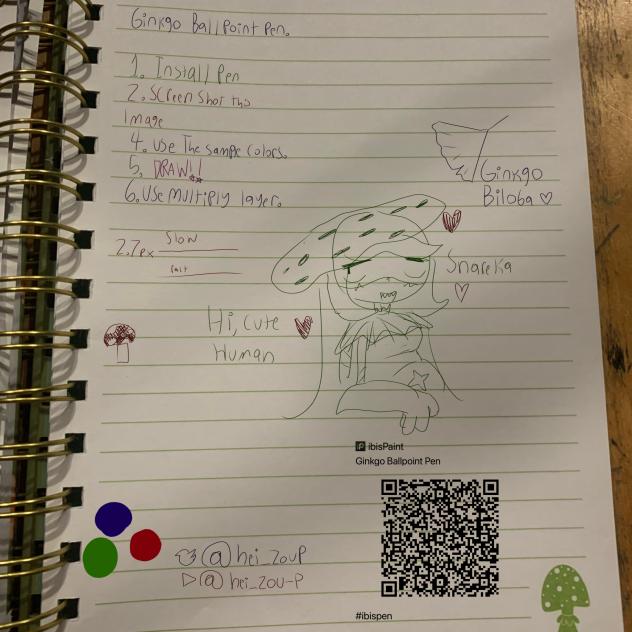 Ginkgo Ballpoint Pen.
1. Install Pen
2. Screen Shot this
Image
4. Use The sample colors.
5. DRAW!!
6. Use Multiply layer.
Ginkgo
Biloba
2.7px
Slow
fast
Snareka
Hi, cute
Human
ibisPaint
Ginkgo Ballpoint Pen
@hei_zouP
@hei_zou-P
#ibispen